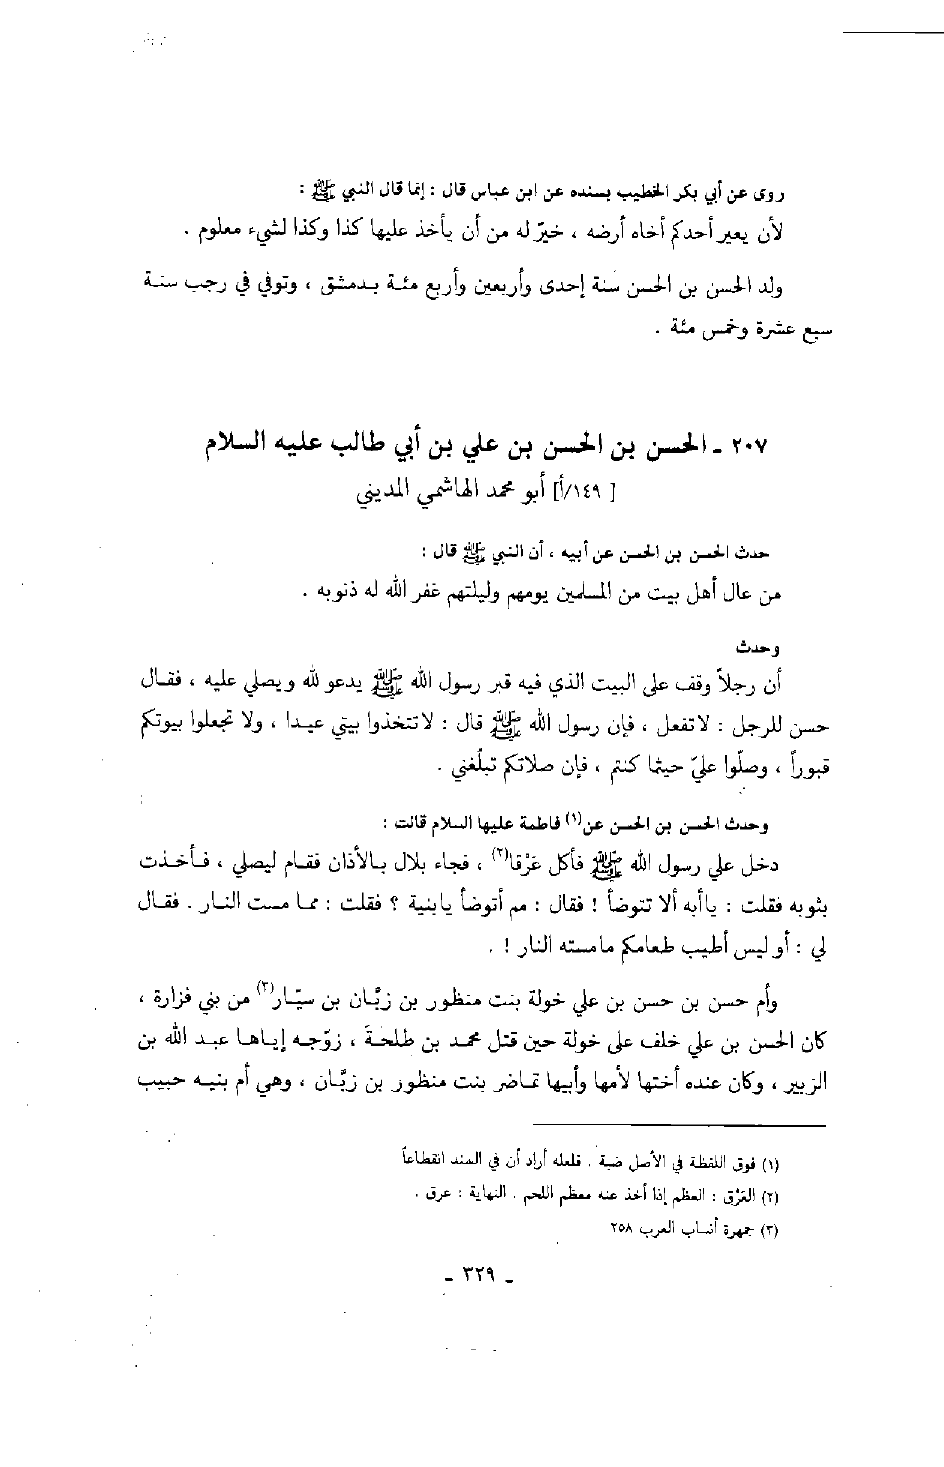 روى عن أبي بكر الخطيب بسنده عن ابن عباس قال : إنما قال النبي ﷺ :
لأن يعير أحدكم أخاه أرضه ، خيرٌ له من أن يأخذ عليها كذا وكذا لشيء معلوم .
ولد الحسن بن الحسن سنة إحدى وأربعين وأربع مئة بدمشق ، وتوفي في رجب سنة
سبع عشرة وخمس مئة .
٢٠٧ ـ الحسن بن الحسن بن علي بن أبي طالب عليه السلام
[ ١٤٩/أ] أبو محمد الهاشمي المديني
حدث الحسن بن الحسن عن أبيه ، أن النبي ﷺ قال :
من عال أهل بيت من المسلمين يومهم وليلتهم غفر الله له ذنوبه .
وحدث
أن رجلاً وقف على البيت الذي فيه قبر رسول الله ﷺ يدعو له ويصلي عليه ، فقال
حسن للرجل : لا تفعل ، فإن رسول الله ﷺ قال : لا تتخذوا بيتي عيدا ، ولا تجعلوا بيوتكم
قبوراً ، وصلّوا عليّ حيثما كنتم ، فإن صلاتكم تبلّغني .
وحدث الحسن بن الحسن عن(١) فاطمة عليها السلام قالت :
دخل علي رسول الله ﷺ فأكل عَرْقا(٢) ، فجاء بلال بالأذان فقام ليصلي ، فأخذت
بثوبه فقلت : يا أبه ألا تتوضأ ! فقال : مم أتوضأ يا بنية ؟ فقلت : مما مست النار . فقال
لي : أو ليس أطيب طعامكم ما مسته النار ! .
وأم حسن بن حسن بن علي خولة بنت منظور بن زبَّان بن سيّار(٣) من بني فزارة ،
كان الحسن بن علي خلف على خولة حين قتل محمد بن طلحةَ ، زوّجه إياها عبد الله بن
الزبير ، وكان عنده أختها لأمها وأبيها تماضر بنت منظور بن زبَّان ، وهي أم بنيه حبيب
(١) فوق اللفظة في الأصل ضبة . فلعله أراد أن في السند انقطاعاً
(٢) العَرْق : العظم إذا أخذ عنه معظم اللحم . النهاية : عرق .
(٣) جمهرة أنساب العرب ٢٥٨
ـ ٣٢٩ ـ